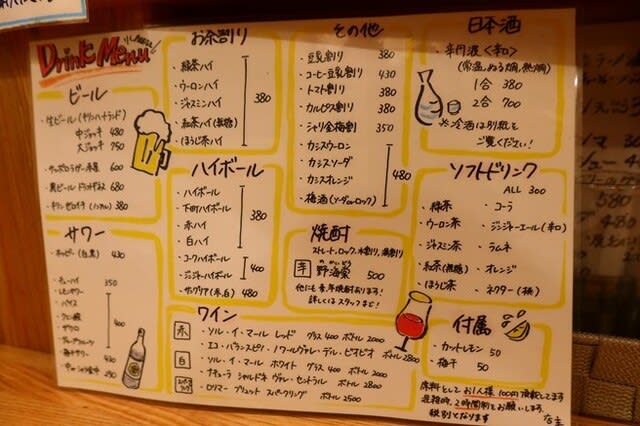 Drink Menu
ビール
・生ビール(キリンハートランド)
中ジョッキ 480
大ジョッキ 750
・サッポロラガー赤星 600
・黒ビール 680
・キリンゼロイチ(ノンアル) 380
サワー
・ホッピー(白黒) 430
・チューハイ 350
・レモンサワー
・ライム
・グレープフルーツ
・梅干サワー 430
350
お茶割り
・緑茶ハイ
・ウーロンハイ
・ジャスミンハイ
・紅茶ハイ(無糖)
・ほうじ茶ハイ
380
ハイボール
・ハイボール
・下町ハイボール
・赤ハイ
・白ハイ
380
・コークハイボール
・ジンジャーハイボール
400
・サングリア(赤、白) 480
その他
・豆乳割り 380
・コーヒー豆乳割り 430
・トマト割り 380
・カルピス割り 380
・シャリ金梅割 350
・カシスウーロン
・カシスソーダ
・カシスオレンジ
・梅酒(ソーダorロック)
480
焼酎
ストレート、ロック、水割り、湯割り
芋 野海棠 500
他にも季節焼酎あります!
詳しくはスタッフまで!
日本酒
・辛丹波<辛口>
(常温、ぬる燗、熱燗)
1合 380
2合 700
※冷酒は別紙を
ご覧ください!
ソフトドリンク
ALL 300
・緑茶
・コーラ
・ウーロン茶
・ジンジャーエール(辛口)
・ジャスミン茶
・ラムネ
・紅茶(無糖)
・オレンジ
・ほうじ茶
・ネクター(桃)
ワイン
赤
・ソル・イ・マール レッド グラス 400 ボトル 2000
・エコ・バランスピノ・ノワールヴァレ・デル・ビオビオ ボトル 2800
白
・ソル・イ・マール ホワイト グラス 400 ボトル 2000
・ナチューラ シャルドネ ヴァレ・セントラル ボトル 2800
スパークリング
・ロリマー ブリュット スパークリング ボトル 2500
付属
・カットレモン 50
・梅干 50
席料としてお1人様100円頂戴してます
混雑時、2時間制をお願いします。
税別となります
店主